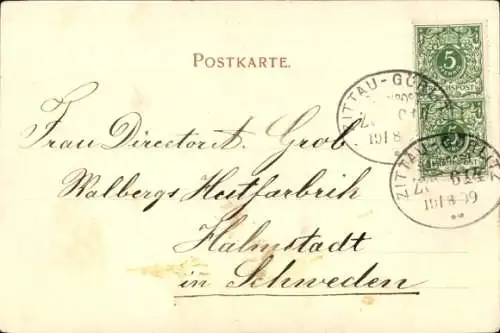 POSTKARTE.
5
REICHSPOST
5
REICHSPOST
ZITTAU-GÖRLITZ
BAHNPOST
19/8
ZITTAU-GÖRLITZ
ZUG 614
19/8 99
Frau Directorit. Grob
Walbergs Hutfarbrik
Halmstadt
in Schweden